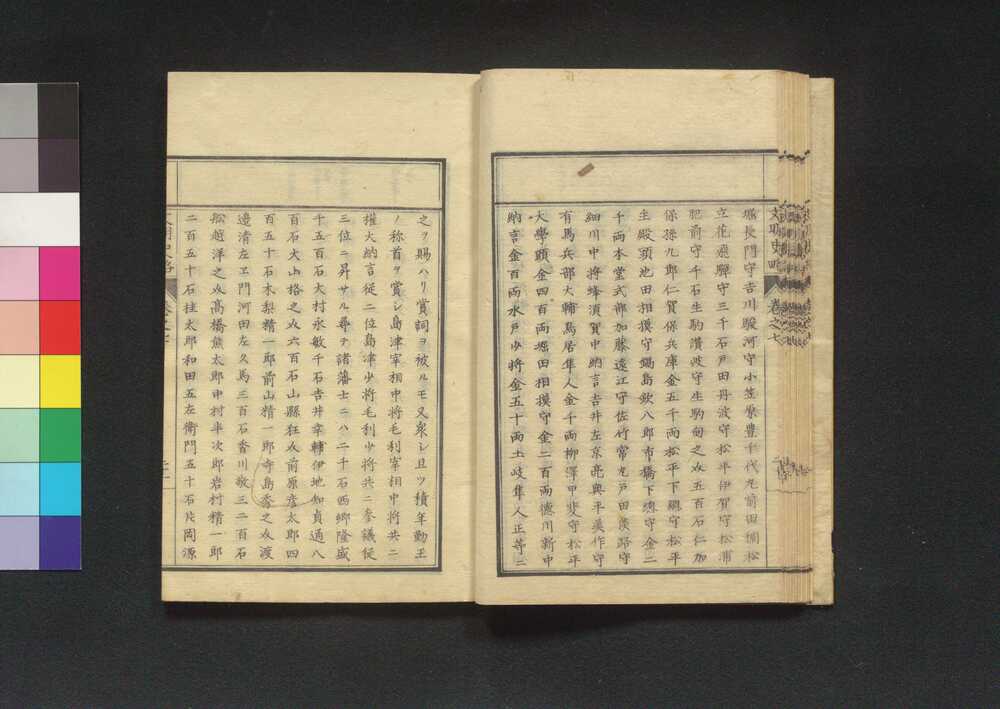 堀長門守吉川駿河守小笠原豊千代丸前田稠松
立花飛騨守三千石戸田丹波守松平伊賀守松浦
肥前守千石生駒讃岐守生駒甸之丞五百石仁加
保孫九郎仁賀保兵庫金五千両松平下総守松平
主殿頭池田相摸守鍋島欽八郎市橋下總守金二
千両本堂式部加藤遠江守佐竹常丸戸田淡路守
細川中將蜂須賀中納言吉井左京亮奥平美作守
有馬兵部大輔鳥居隼人金千両柳澤甲斐守松平
大學頭金四百両堀田相摸守金二百両德川新中
納言金百両水戸少将金五十両土岐隼人正等ニ
之ヲ賜ハリ賞詞ヲ被ルモ又衆シ且ツ積年勤王
ノ称首ヲ賞シ島津宰相中將毛利宰相中將共ニ
權大納言從二位島津少將毛利少將共ニ參議從
三位ニ昇サル尋テ諸藩士ニハ二千石西郷隆盛
千五百石大村永敏千石吉井幸輔伊地知貞通八
百石大山格之丞六百石山縣狂介前原彦太郎四
百五十石木梨精一郎前山精一郎寺島秀之丞渡
邉清左ヱ門河田左久馬三百石香川敬三二百石
舩越洋之丞髙橋熊太郎中村半次郎岩村精一郎
二百五十石桂太郎和田五左衛門五十石片岡源
文明史略
卷之七